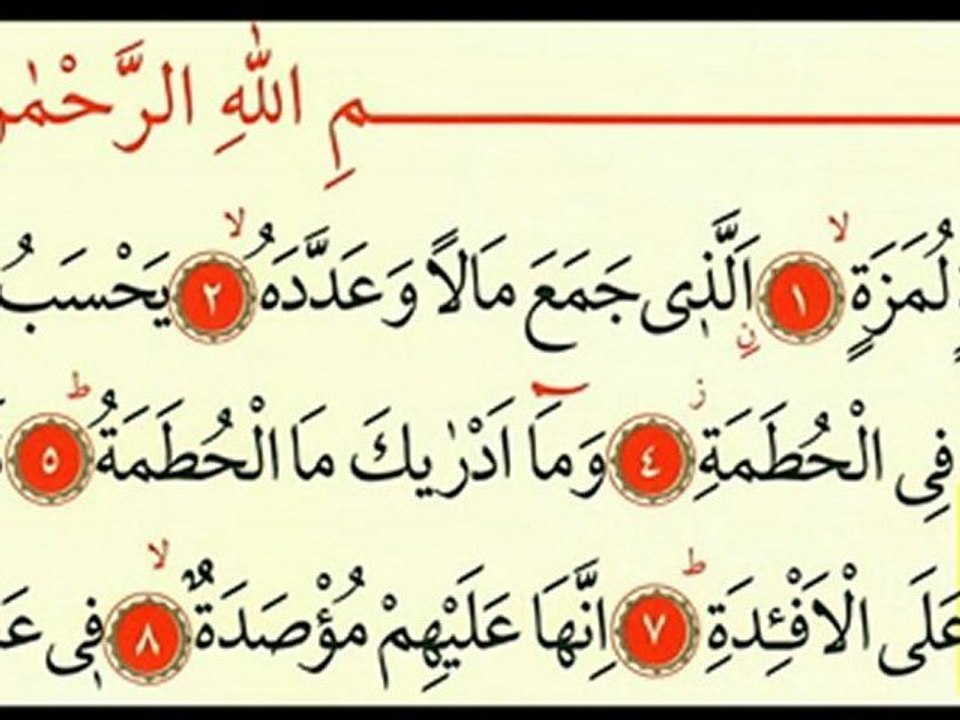 ـمِ اللّٰهِ الرَّحْمٰنِ
لُمَزَةٍۙ ١ اَلَّذ۪ى جَمَعَ مَالًا وَعَدَّدَهُۙ ٢ يَحْسَبُ
فِى الْحُطَمَةِۘ ٤ وَمَٓا اَدْرٰيكَ مَا الْحُطَمَةُۜ ٥
عَلَى الْاَفْـِٔدَةِۜ ٧ اِنَّهَا عَلَيْهِمْ مُؤْصَدَةٌۙ ٨ ف۪ى عَ